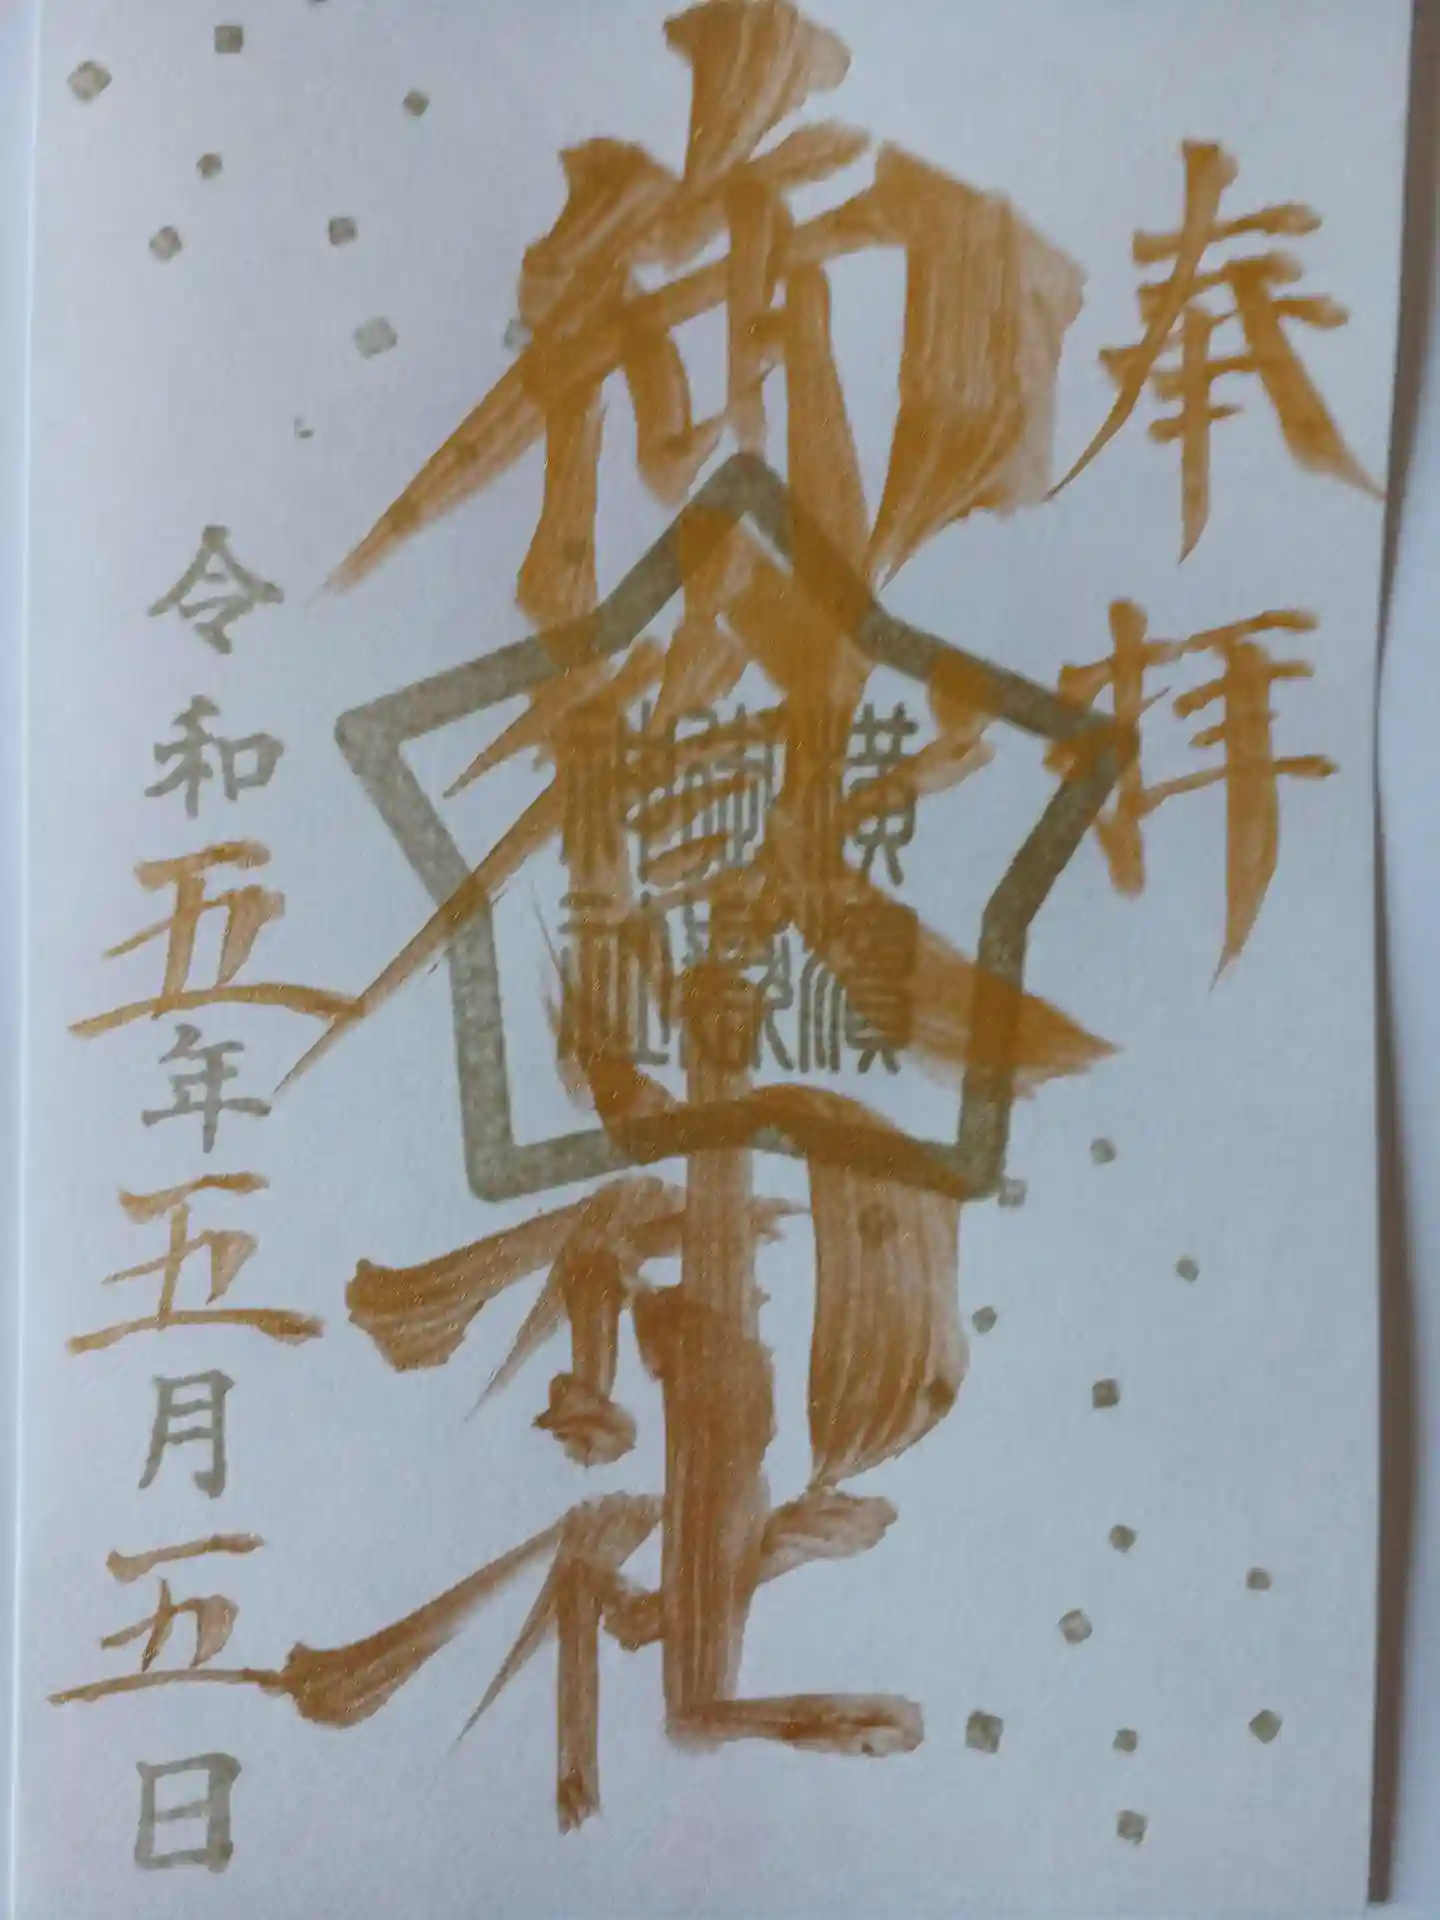 奉拝
御嶽神社
横濱
御嶽
神社
令和五年五月五日